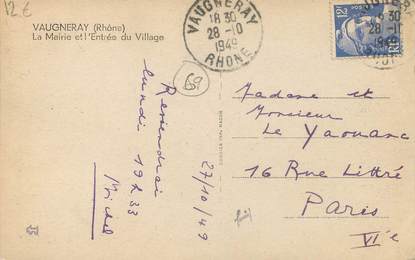 12 €
VAUGNERAY (Rhône)
La Mairie et l'Entrée du Village
VAUGNERAY
18 30
28 - 10
1949
RHONE
12F
69
Reviendrai
lundi 19h33
Michel
27/10/49
Madame et
Monsieur
Le Yaouanc
16 Rue Littré
Paris
VIe